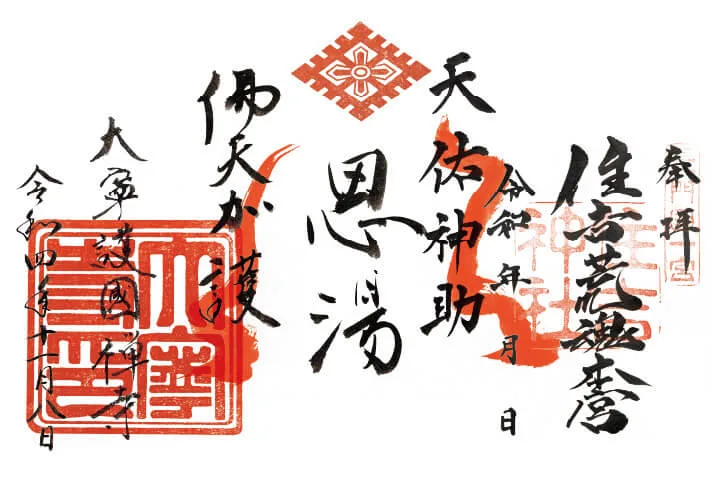 奉拝
住吉荒魂本宮
住吉
神社
令和 年 月 日
天佑神助
恩湯
佛天加護
大寧護國禅寺
令和四年十一月八日